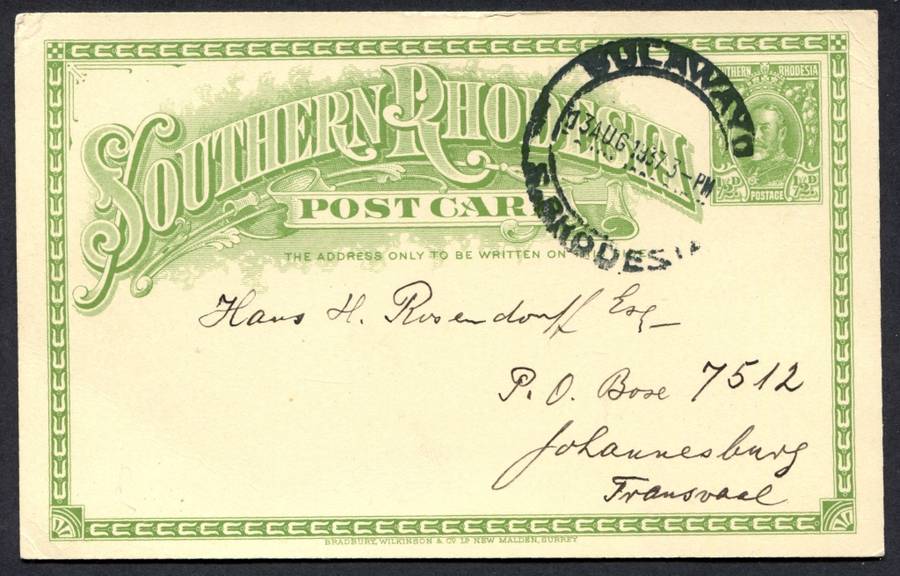 SOUTHERN RHODESIA
POST CARD
THE ADDRESS ONLY TO BE WRITTEN ON
BULAWAYO
13 AUG 1937 3 - PM
S. RHODESIA
SOUTHERN RHODESIA
½D. POSTAGE ½D.
Hans H. Rosendorff Esq
P. O. Box 7512
Johannesburg
Transvaal
BRADBURY, WILKINSON & Co. Ld. NEW MALDEN, SURREY